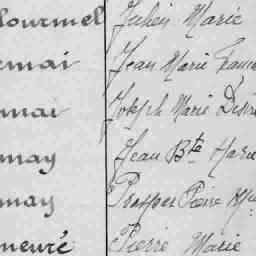 lourmel Julien Marie
emai Jean Marie Franc
mai Joseph Marie Désiré
may Jean Bte Marie
may Prosper Pierre
meuré Pierre Marie